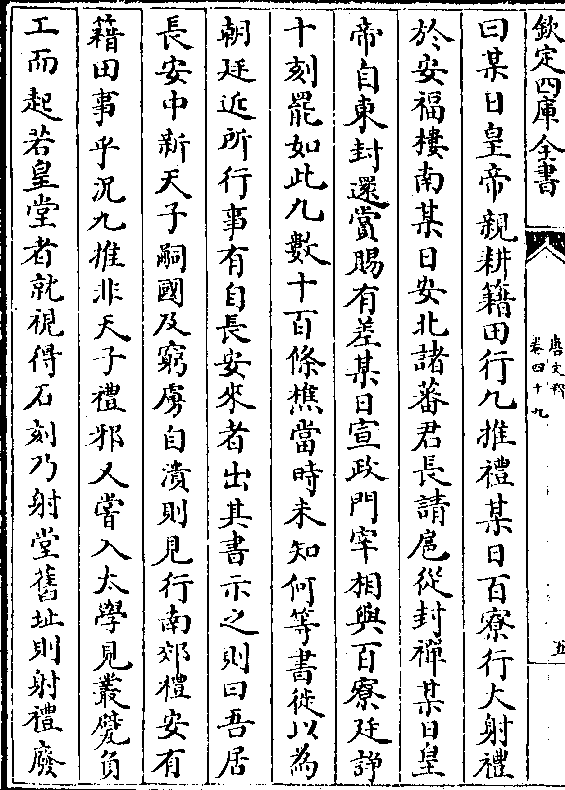 欽定四庫全書
唐文粹
卷四十九
五
曰某日皇帝親耕籍田行九推禮某日百寮行大射禮
於安福樓南某日安北諸蕃君長請扈從封禪某日皇
帝自東封還賞賜有差某日宣政門宰相與百寮廷諍
十刻罷如此凡數十百條樵當時未知何等書徒以為
朝廷近所行事有自長安來者出其書示之則曰吾居
長安中新天子嗣國及窮虜自潰則見行南郊禮安有
籍田事乎況九推非天子禮邪又嘗入太學見叢甓負
工而起若皇堂者就視得石刻乃射堂舊址則射禮廢